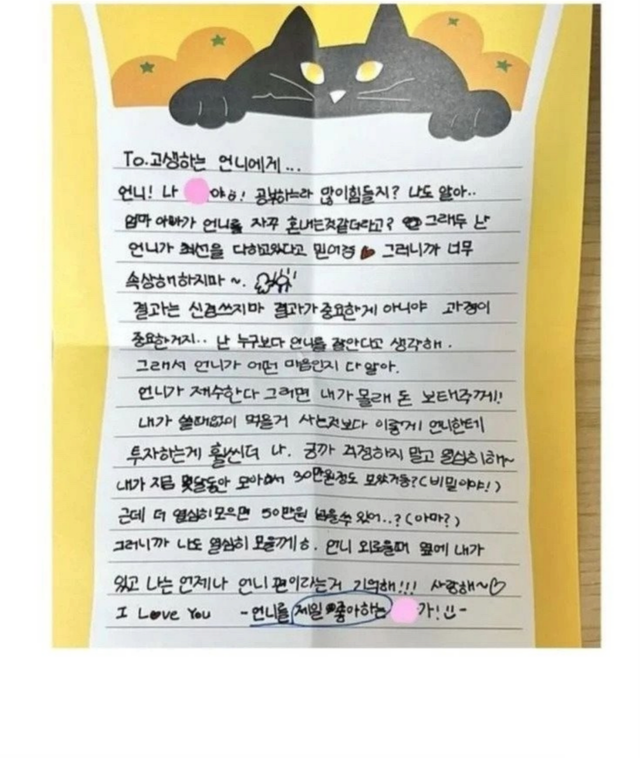 To.고생하는 언니에게...
언니! 나 야ㅎㅎ! 공부하느라 많이힘들지? 나도 알아..
엄마 아빠가 언니를 자꾸 혼내는것같더라고? 그래두 난
언니가 최선을 다하고있다고 믿어경 그러니까 너무
속상해하지마~.
결과는 신경쓰지마 결과가 중요한게 아니야 과정이
중요한거지.. 난 누구보다 언니를 잘안다고 생각해.
그래서 언니가 어떤 마음인지 다 알아.
언니가 재수한다 그러면 내가 몰래 돈 보태주께!!
내가 쓸때없이 먹을거 사는것보다 이렇게 언니한테
투자하는게 훨씬더 나. 긍까 걱정하지 말고 열심히해~
내가 지금 몇달동안 모아서 30만원정도 모았거등?(비밀이야!)
근데 더 열심히모으면 50만원 넘을쑤 있어..?(아마?)
그러니까 나도 열심히 모을께ㅎ. 언니 외로울때 옆에 내가
있고 나는 언제나 언니 편이라는거 기억해!!! 사랑해~♡
I Love You -언니를 제일 좋아하는 가!-